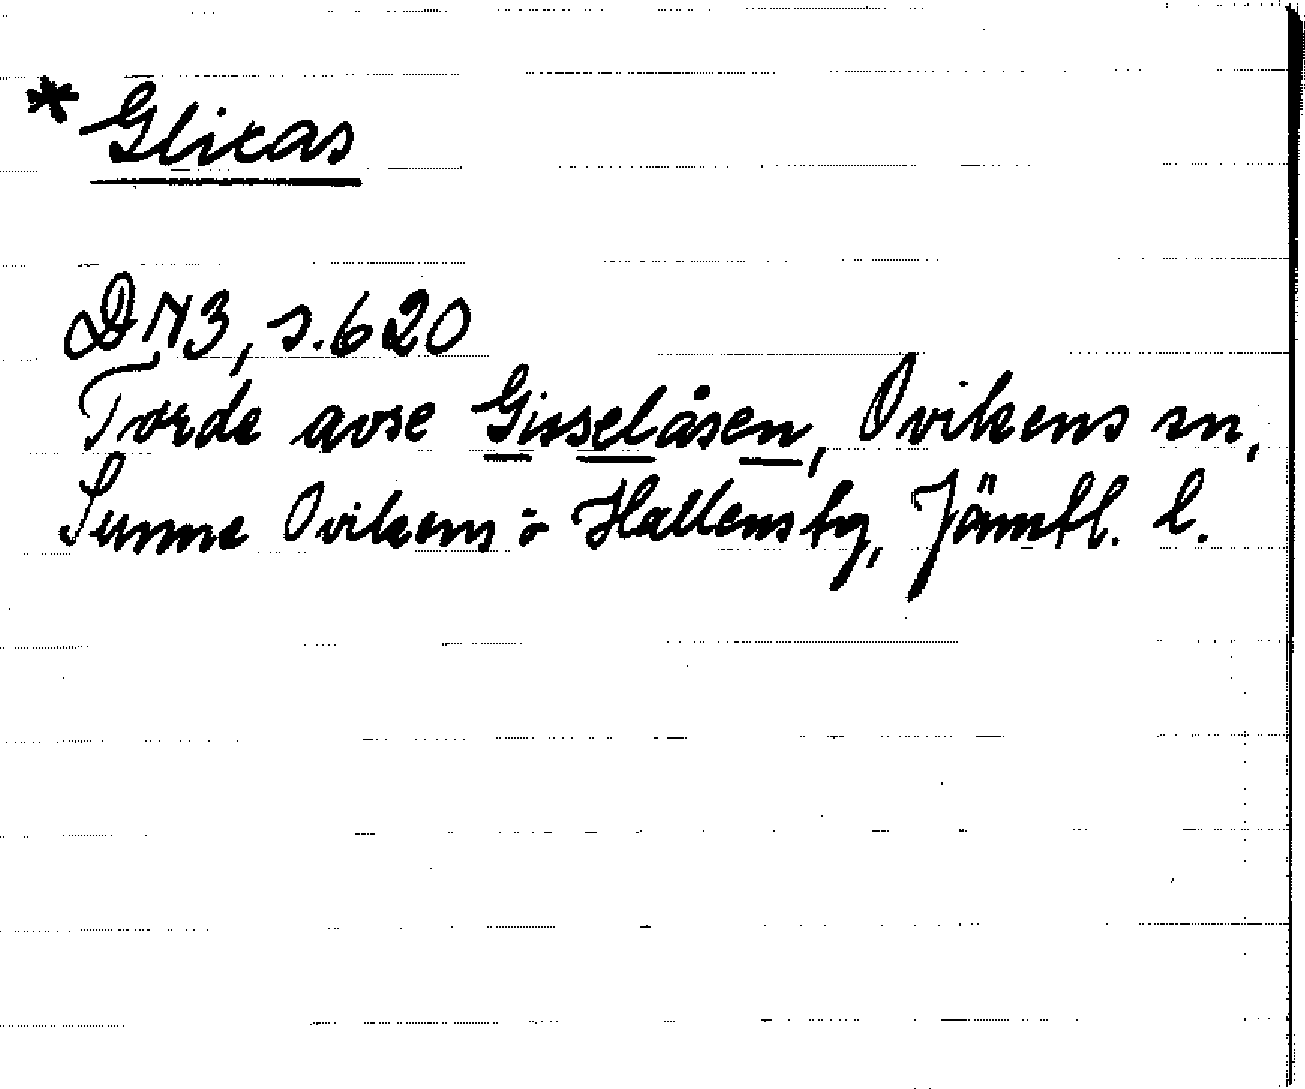 * Glicas
DN 3, s. 620
Torde avse Gisselåsen, Ovikens sn,
Sunne Ovikens o Hallens tg, Jämtl. l.